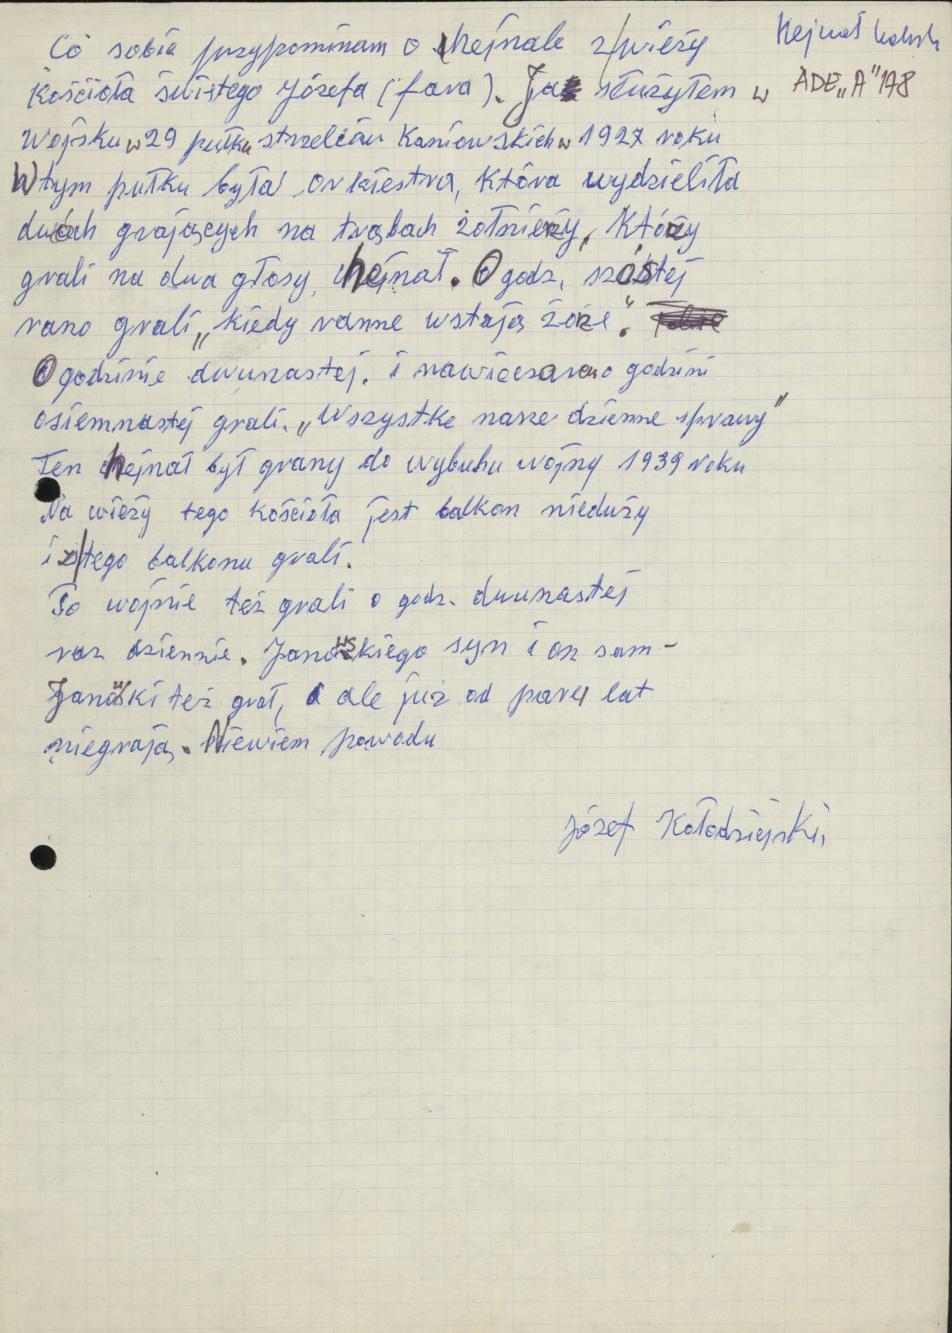 Hejnał kalisk
ADE „A" 178
Co sobie przypominam o hejnale z/wieży
kościoła świstego Józefa (fara). Ja służyłem w
Wojsku w 29 pułku strzelców Kaniowskich w 1927 roku
W tym pułku była orkiestra, która wydzieliła
dwóch grających na trąbach żołnierzy, Którzy
grali na dwa głosy, hejnał. O godz, szóstej
rano grali „kiedy ranne wstają zorze".
O godzinie dwunastej. i nawieczorem o godzini
osiemnastej grali. „Wszystke nasze dzienne sprawy"
Ten hejnał był grany do wybuhu wojny 1939 roku
Na wieży tego kościoła jest balkon nieduży
i z/tego balkonu grali.
Po wojnie też grali o godz. dwunastej
raz dziennie. Janowskiego syn i on sam –
Janowski też grał, ale już od paru lat
niegrają. Niewiem powodu
Józef Kołodziejski,